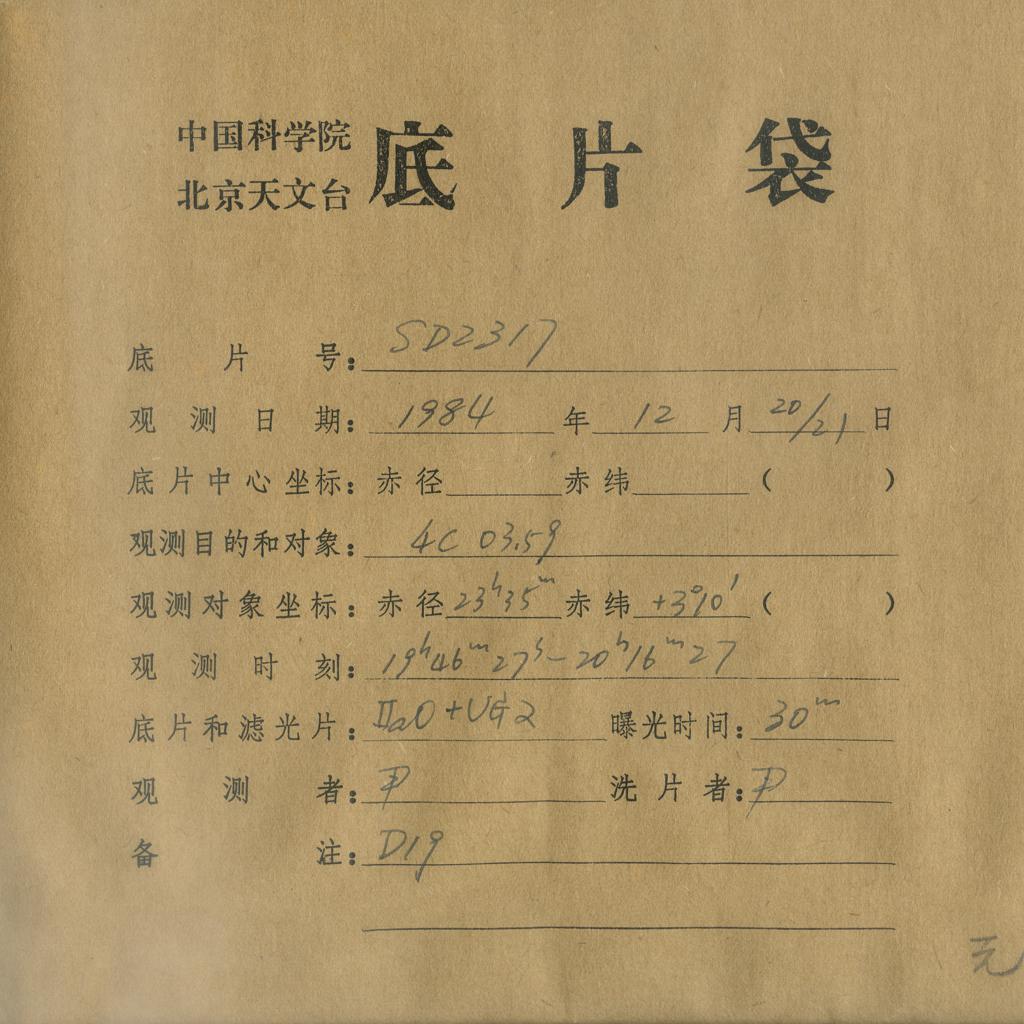 中国科学院
北京天文台
底片袋
底片号：SD2317
观测日期：1984年12月20/21日
底片中心坐标：赤径 赤纬 （ ）
观测目的和对象：4C 03.59
观测对象坐标：赤径23ʰ35ᵐ赤纬+3°10′（ ）
观测时刻：19ʰ46ᵐ27ˢ—20ʰ16ᵐ27
底片和滤光片：IIaO+UG2 曝光时间：30ᵐ
观测者：尹 洗片者：尹
备注：D19
元